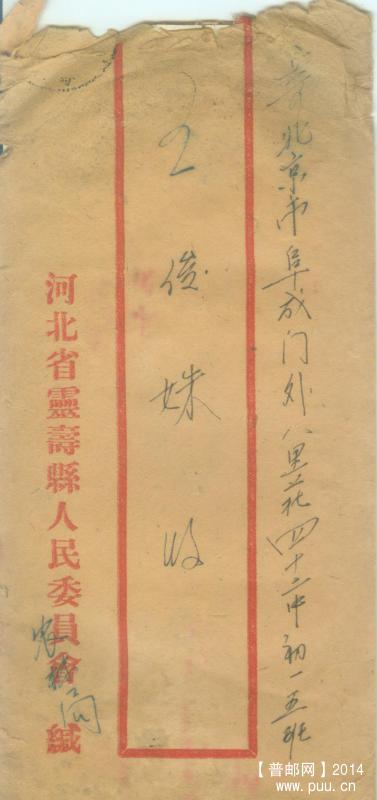 寄北京市阜成门外八里庄四十二中初一五班
王俊姝收
河北省靈壽縣人民委員會緘
局
【普邮网】2014
www.puu.cn